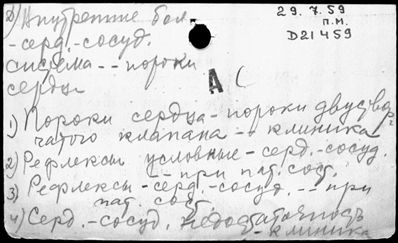 29.7.59
п.м.
D21459
2) Внутренние бол.
-серд.-сосуд.
система -- пороки
сердца
А (
1) Пороки сердца - пороки двуство
чатого клапана -- клиника
2) Рефлексы условные - серд.-сосуд.
-- при пат. сост.
3) Рефлексы - серд.-сосуд. -- при
пат. сост.
4) Серд.-сосуд. недостаточность
- клиника